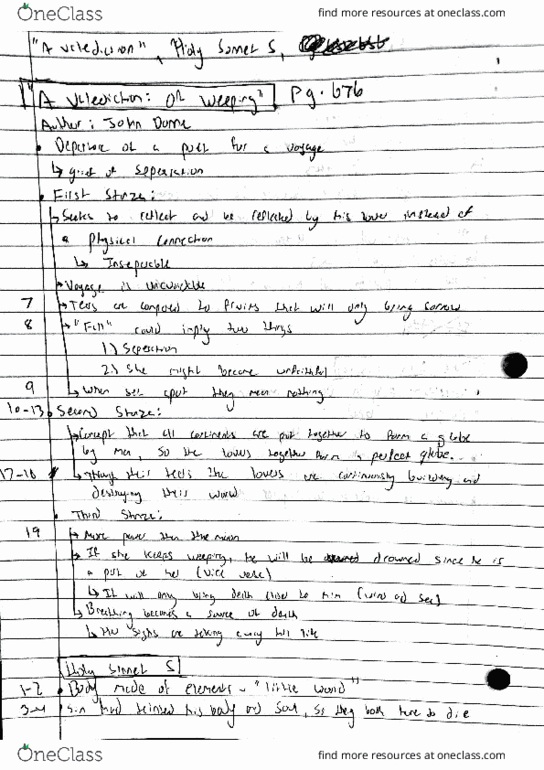 OneClass
find more resources at oneclass.com
"A Valediction", Holy Sonnet 5,
"A Valediction: Of Weeping" Pg. 676
Author: John Donne
• Departure of a poet for a voyage
↳ grief of seperation
• First Stanza:
↳ Seeks to reflect and be reflected by his lover instead of
a physical connection
↳ Inseperable
↳ Voyage is unavoidable
7 ↳ Tears are compared to fruits that will only bring sorrow
8 ↳ "Fall" could imply two things
1) Seperation
2) She might become unfaithful
9 ↳ When set apart they mean nothing
10-13 • Second Stanza:
↳ Concept that all continents are put together to form a globe
by men, so the lovers together form a perfect globe.
17-18 ↳ Through their tears the lovers are continuously building and
destroying their world
• Third Stanza:
19 ↳ More power than the moon
↳ If she keeps weeping, he will be drowned since he is
a part of her (vice versa)
↳ It will only bring death closer to him (wind and sea)
↳ Breathing becomes a source of death
↳ Her sighs are taking away his life
Holy Sonnet 5
1-2 • Body made of elements - "little world"
3-4 • Sin had tainted his body and soul, so they both have to die
OneClass
find more resources at oneclass.com